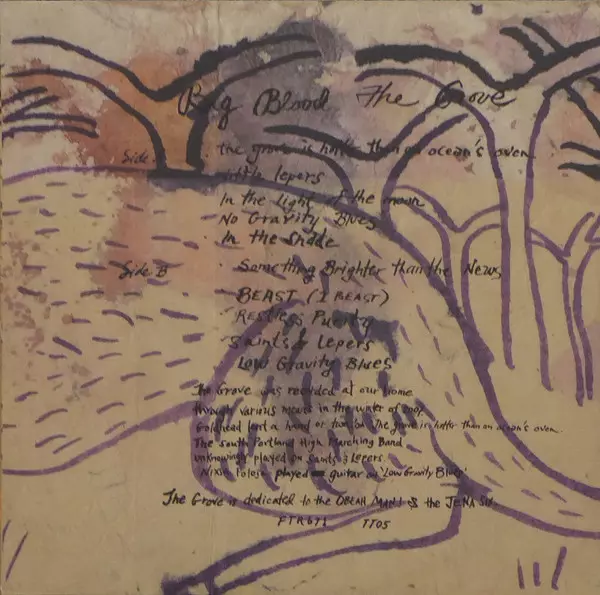 Big Blood The Grove
Side. the grove is hotter than an ocean's oven.
little lepers
In the Light of the moon
No Gravity Blues
In the Shade
Side B Something Brighter than the News
BEAST (1 BEAST)
Restless Purity
Saints & Lepers
Low Gravity Blues
The Grove was recorded at our home
through various means in the winter of 2007.
Goldhead lent a hand or two on 'The grove is hotter than an ocean's oven.
The South Portland High Marching Band
unknowingly played on Saints & Lepers.
played guitar on 'Low Gravity Blues'
The Grove is dedicated to the OBEAH MAN! & the JENA SIX.
FTR671 TT05